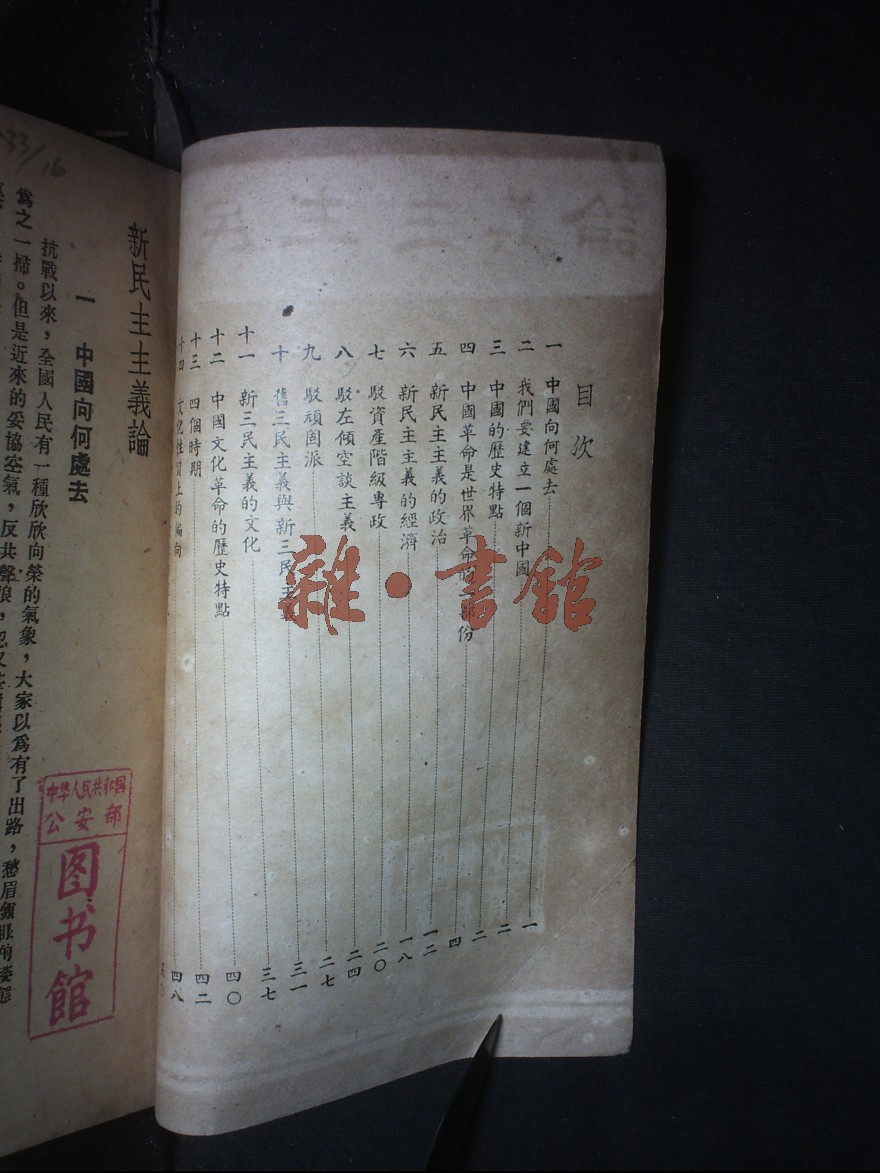 目次
一 中國向何處去 一
二 我們要建立一個新中國 二
三 中國的歷史特點 二
四 中國革命是世界革命的一部份 四
五 新民主主義的政治 一二
六 新民主主義的經濟 一八
七 駁資產階級專政 二〇
八 駁左傾空談主義 二四
九 駁頑固派 二七
十 舊三民主義與新三民主義 三一
十一 新三民主義的文化 三七
十二 中國文化革命的歷史特點 四〇
十三 四個時期 四二
十四 文化性質上的偏向 四八
雜·書館
33/16
新民主主義論
一 中國向何處去
抗戰以來，全國人民有一種欣欣向榮的氣象，大家以為有了出路，愁眉鎖眼的姿態
為之一掃。但是近來的妥協空氣，反共聲浪，忽又
中华人民共和国
公安部
图书馆